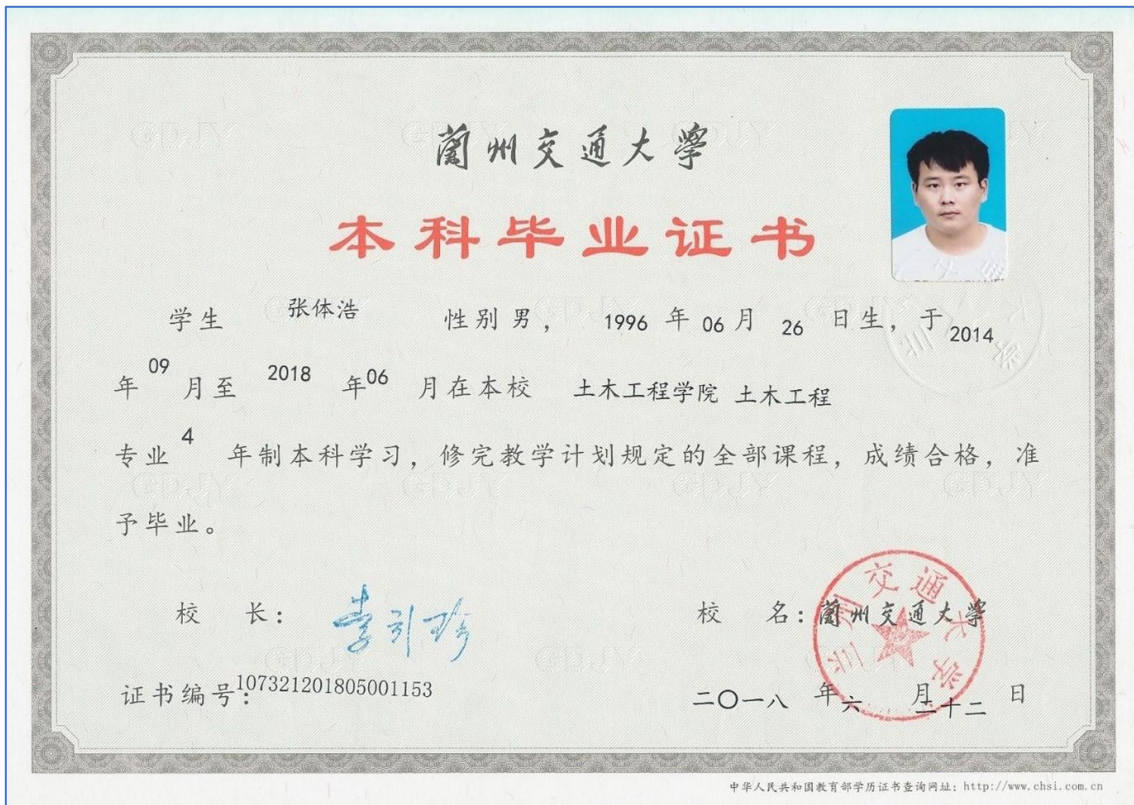 蘭州交通大學
本科毕业证书
学生 张体浩 性别男， 1996 年 06 月 26 日生，于 2014
年 09 月至 2018 年 06 月在本校 土木工程学院 土木工程
专业 4 年制本科学习，修完教学计划规定的全部课程，成绩合格，准
予毕业。
校 长： 李引珍
校 名：蘭州交通大學
兰州交通大学
证书编号：107321201805001153
二〇一八 年 六 月 二十二 日
中华人民共和国教育部学历证书查询网址：http://www.chsi.com.cn